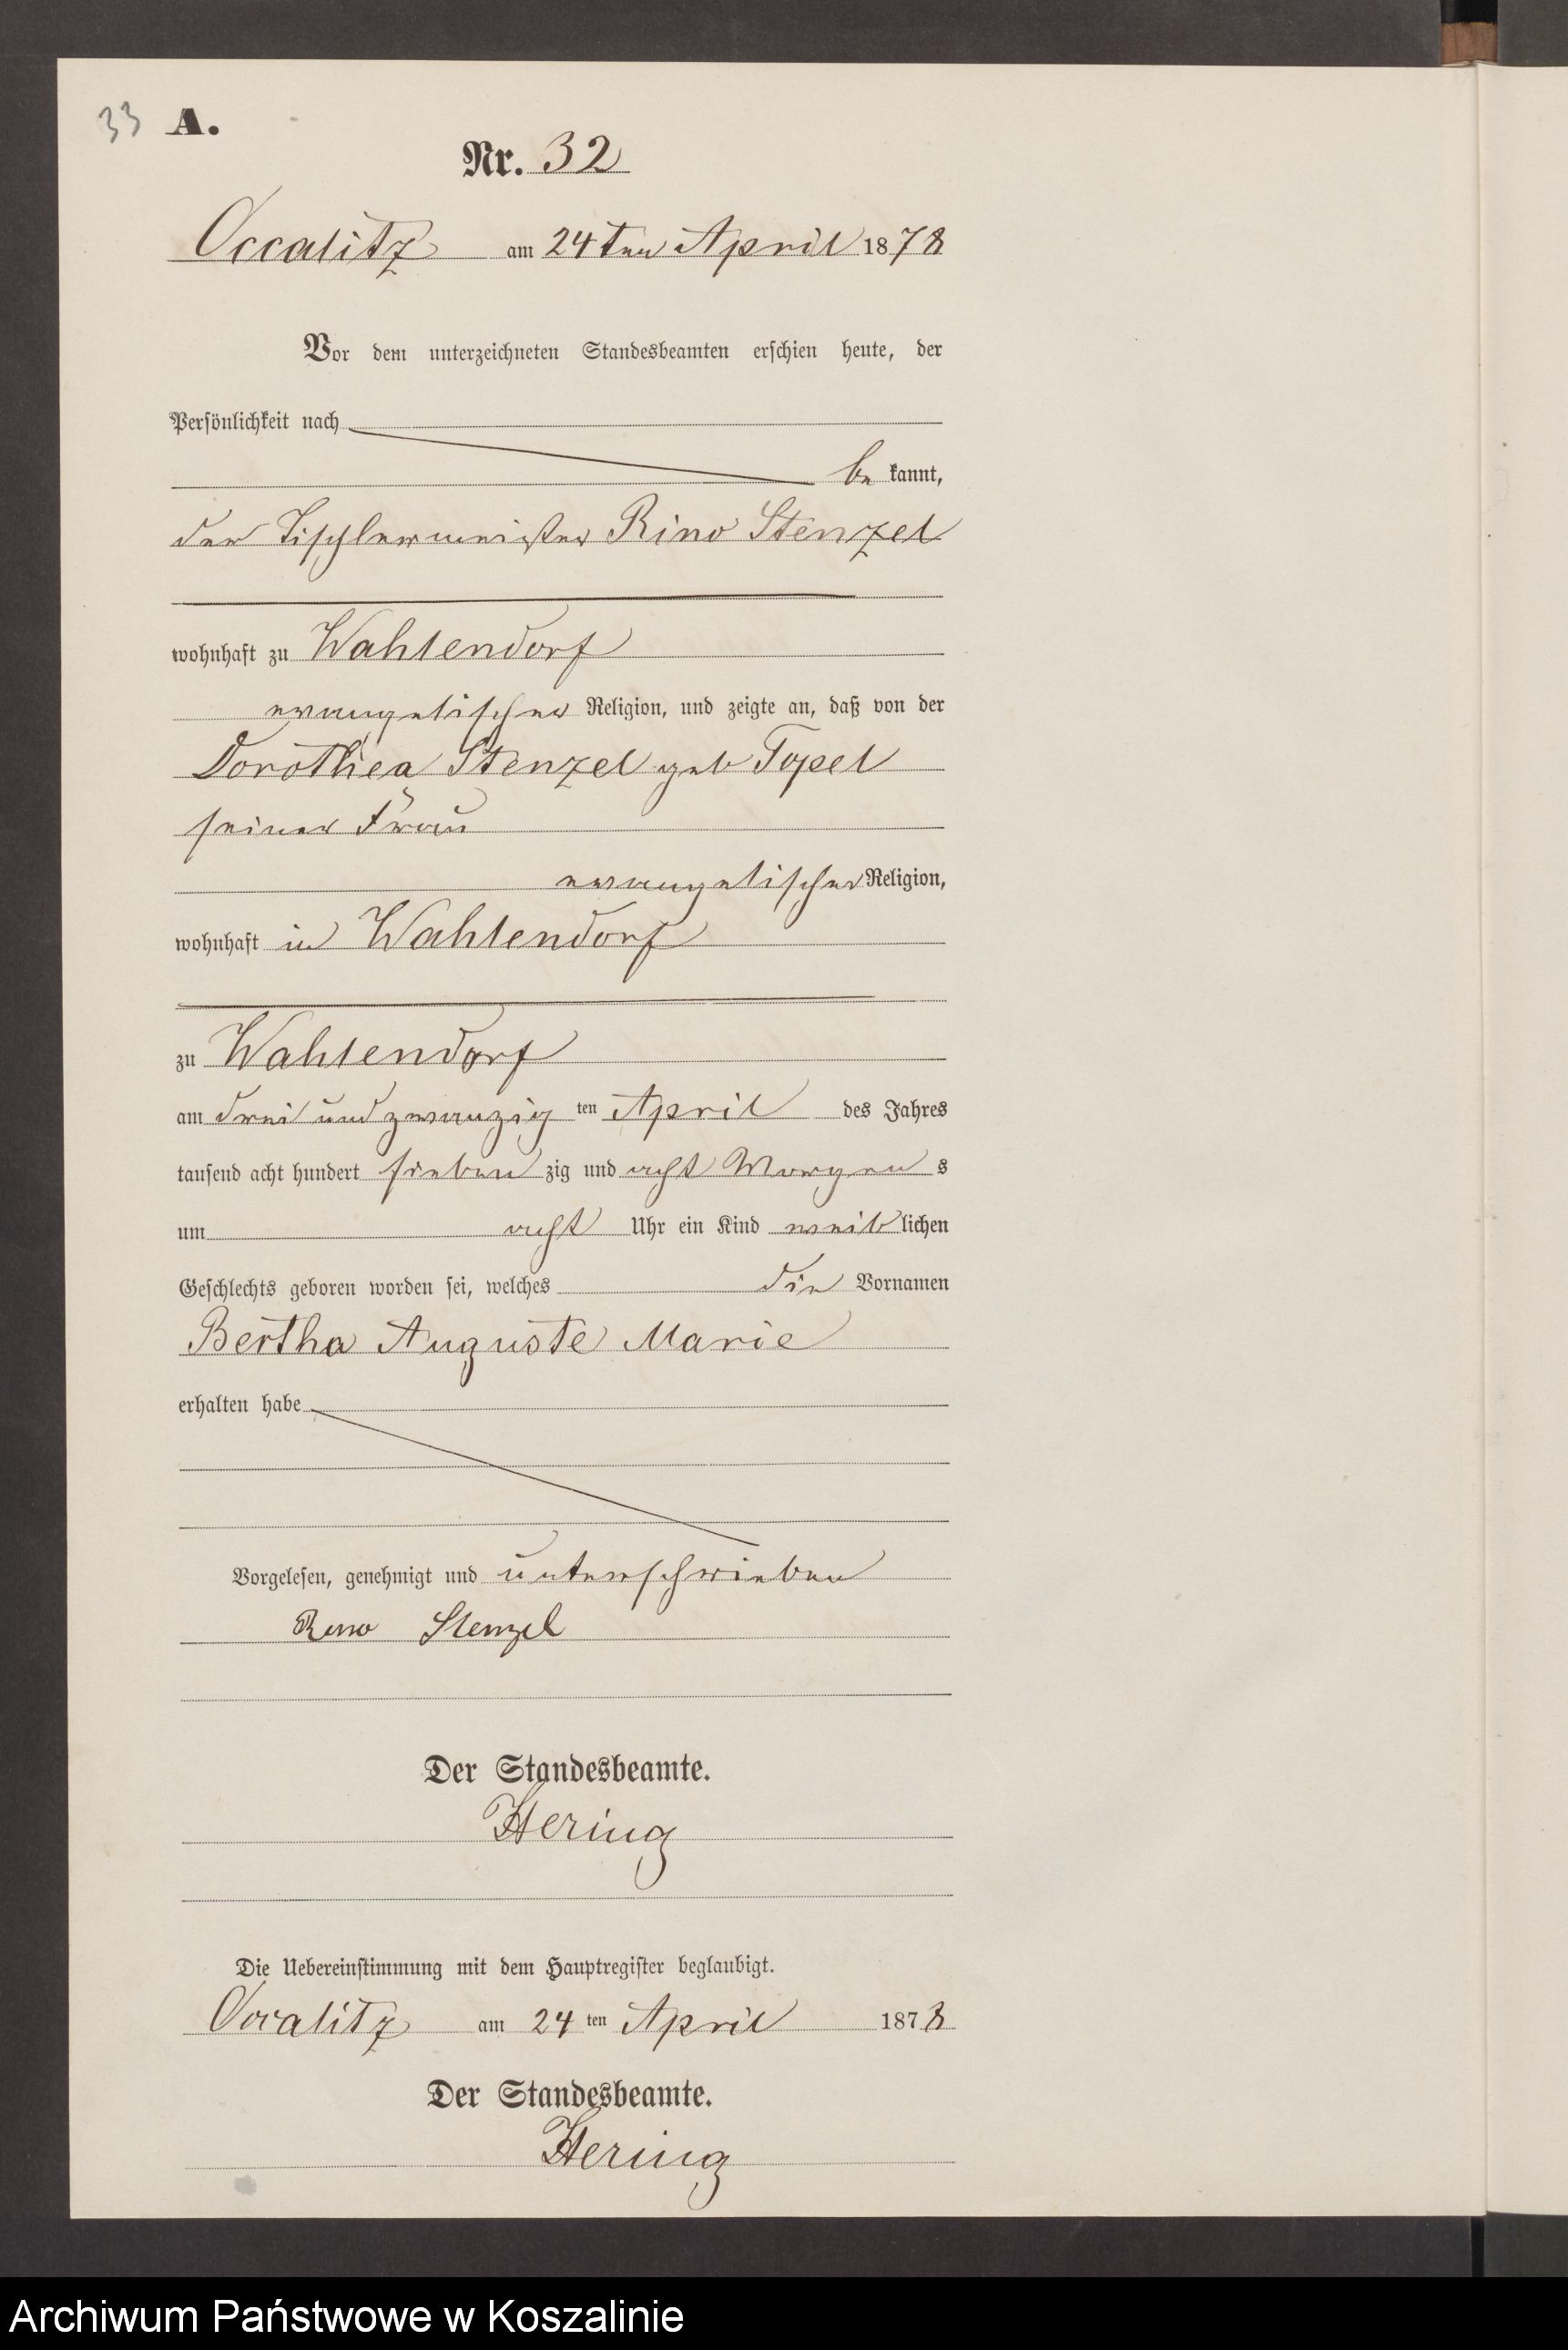 33 A.
Nr. 32
Occalitz am 24ten April 1878
Vor dem unterzeichneten Standesbeamten erschien heute, der
Persönlichkeit nach
be kannt,
der Tischlermeister Rino Stenzel
wohnhaft zu Wahlendorf
evangelischer Religion, und zeigte an, daß von der
Dorothea Stenzel geb Topel
seiner Frau
evangelischer Religion,
wohnhaft in Wahlendorf
zu Wahlendorf
am drei und zwanzig ten April des Jahres
tausend acht hundert sieben zig und acht Morgen s
um acht Uhr ein Kind weib lichen
Geschlechts geboren worden sei, welches die Vornamen
Bertha Auguste Marie
erhalten habe
Vorgelesen, genehmigt und unterschrieben
Rino Stenzel
Der Standesbeamte.
Hering
Die Uebereinstimmung mit dem Hauptregister beglaubigt.
Occalitz am 24 ten April 1878
Der Standesbeamte.
Hering
Archiwum Państwowe w Koszalinie